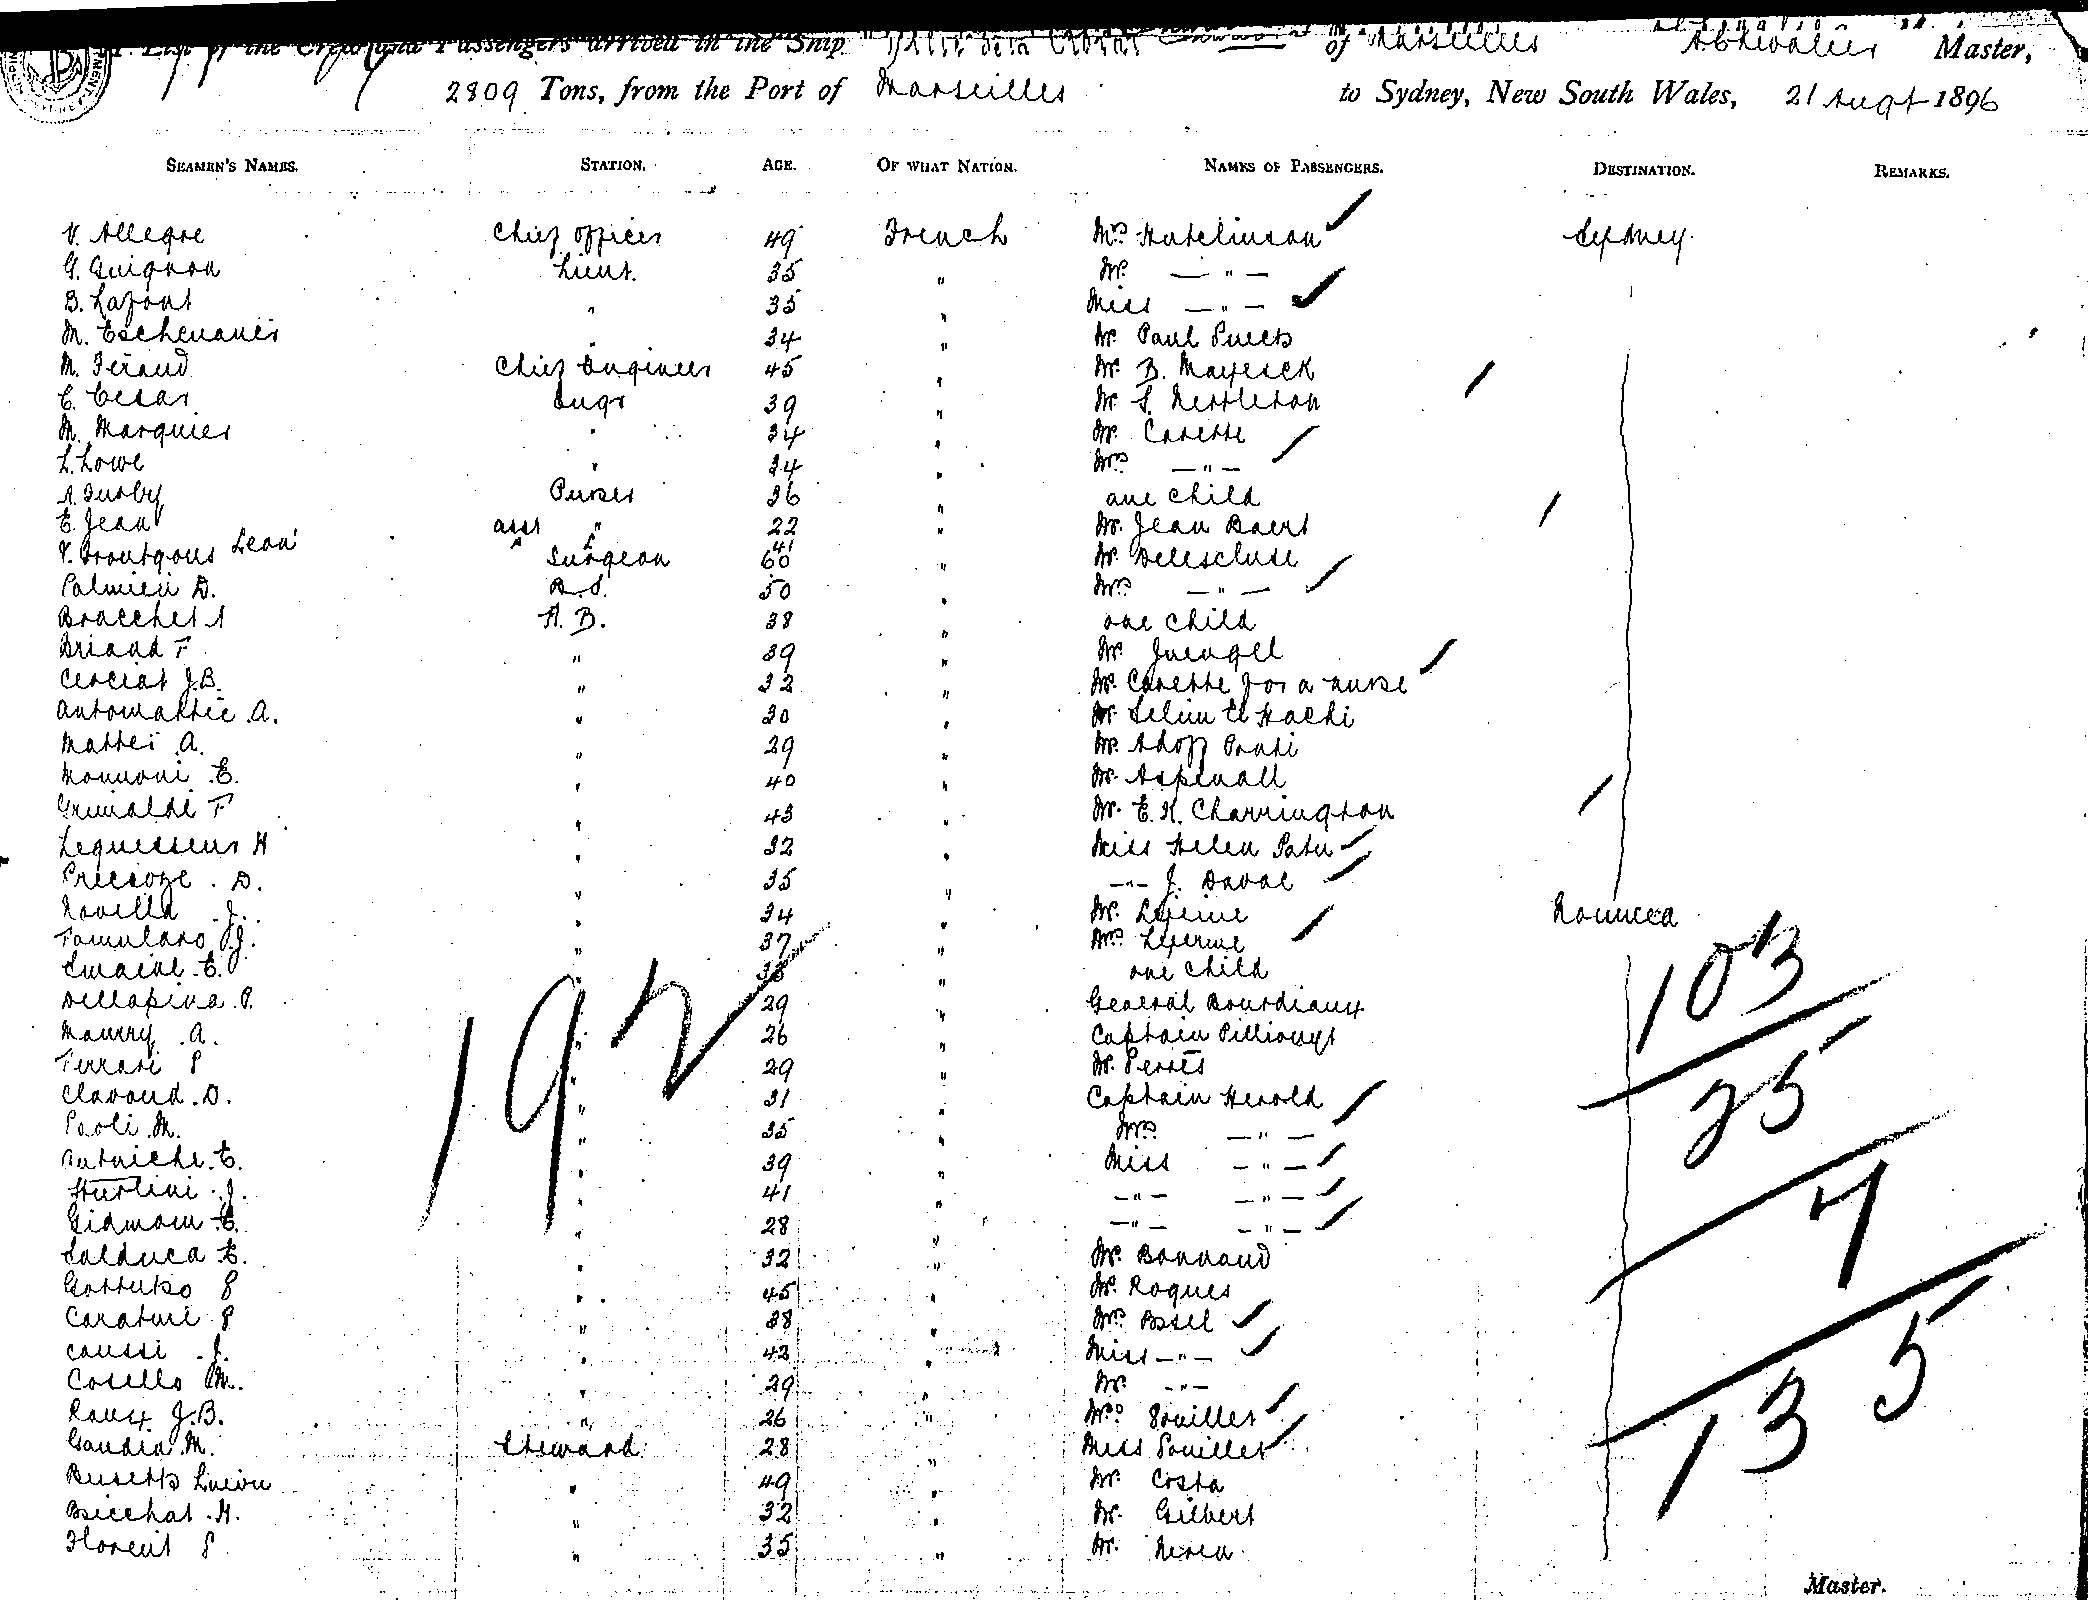 List of the Crew and Passengers arrived in the Ship Ville de la Ciotat of Marseilles A Chevalier Master,
2809 Tons, from the Port of Marseilles to Sydney, New South Wales, 21 Augt 1896
SEAMEN'S NAMES. STATION. AGE. OF WHAT NATION. NAMES OF PASSENGERS. DESTINATION. REMARKS.
V. Allegre Chief officer 49 French Mrs Hutchinson Sydney
G. Guignon Lieut. 35 " Mr. — " —
B. Lafont " 35 " Miss — " —
M. Eschenauer " 34 " Mr Paul
M. Feraud Chief Engineer 45 " Mr B. Mayesck
C. Cesar Engr 39 " Mr S. Nettleton
M. Marquier " 34 " Mr. Carette
L. Lowe " 34 " Mrs — " —
A. Surby Purser 36 " one child
E. Jean asst " 22 " Mr. Jean Baert
V. Leon Surgeon 60 41 " Mr Delescluse
Palmieri D. B.S. 50 " Mrs — " —
Bracchet A A.B. 38 " one child
Briand F " 39 " Mr Juengel
Cerciat J.B. " 32 " Mr. Carette for a nurse
A. " 30 " Mr Selim El Hachi
Mattei A. " 29 " Mr.
Monnoni E. " 40 " Mr. Aspinall
Grimaldi F " 43 " Mr. E. K. Charrington
Lequesseur H " 32 " Miss Helen Patu
Precioze D. " 35 " — " — J. Daval
Novella J. " 34 " Mr. Lejeune Noumea
Famularo J. " 37 " Mrs Lejeune
E. " 33 one child
Dellapina P. " 29 " General Bourdiaux
Maurry A. " 26 " Captain Pillivuyt
Ferrari P " 29 " Mr.
Clavaud D. " 31 " Captain Herold
Paoli M. " 35 " Mrs — " —
E. " 39 " Miss — " —
Sturlini J. " 41 — " — — " —
E. " 28 " — " — — " —
Salduca E. " 32 " Mr. Bonnaud
P " 45 " Mr. Roques
P " 38 " Mrs Bsel
Caussi J. " 42 " Miss — " —
Cosello M. " 29 " Mr. — " —
Roux J.B. " 26 " Mrs Pouillet
Gaudin M. Steward 28 " Miss Pouillet
Busetto " 49 " Mr Costa
Bicchat H. " 32 " Mr. Gilbert
Florent P " 35 " Mr.
192
103
25
7
135
Master.